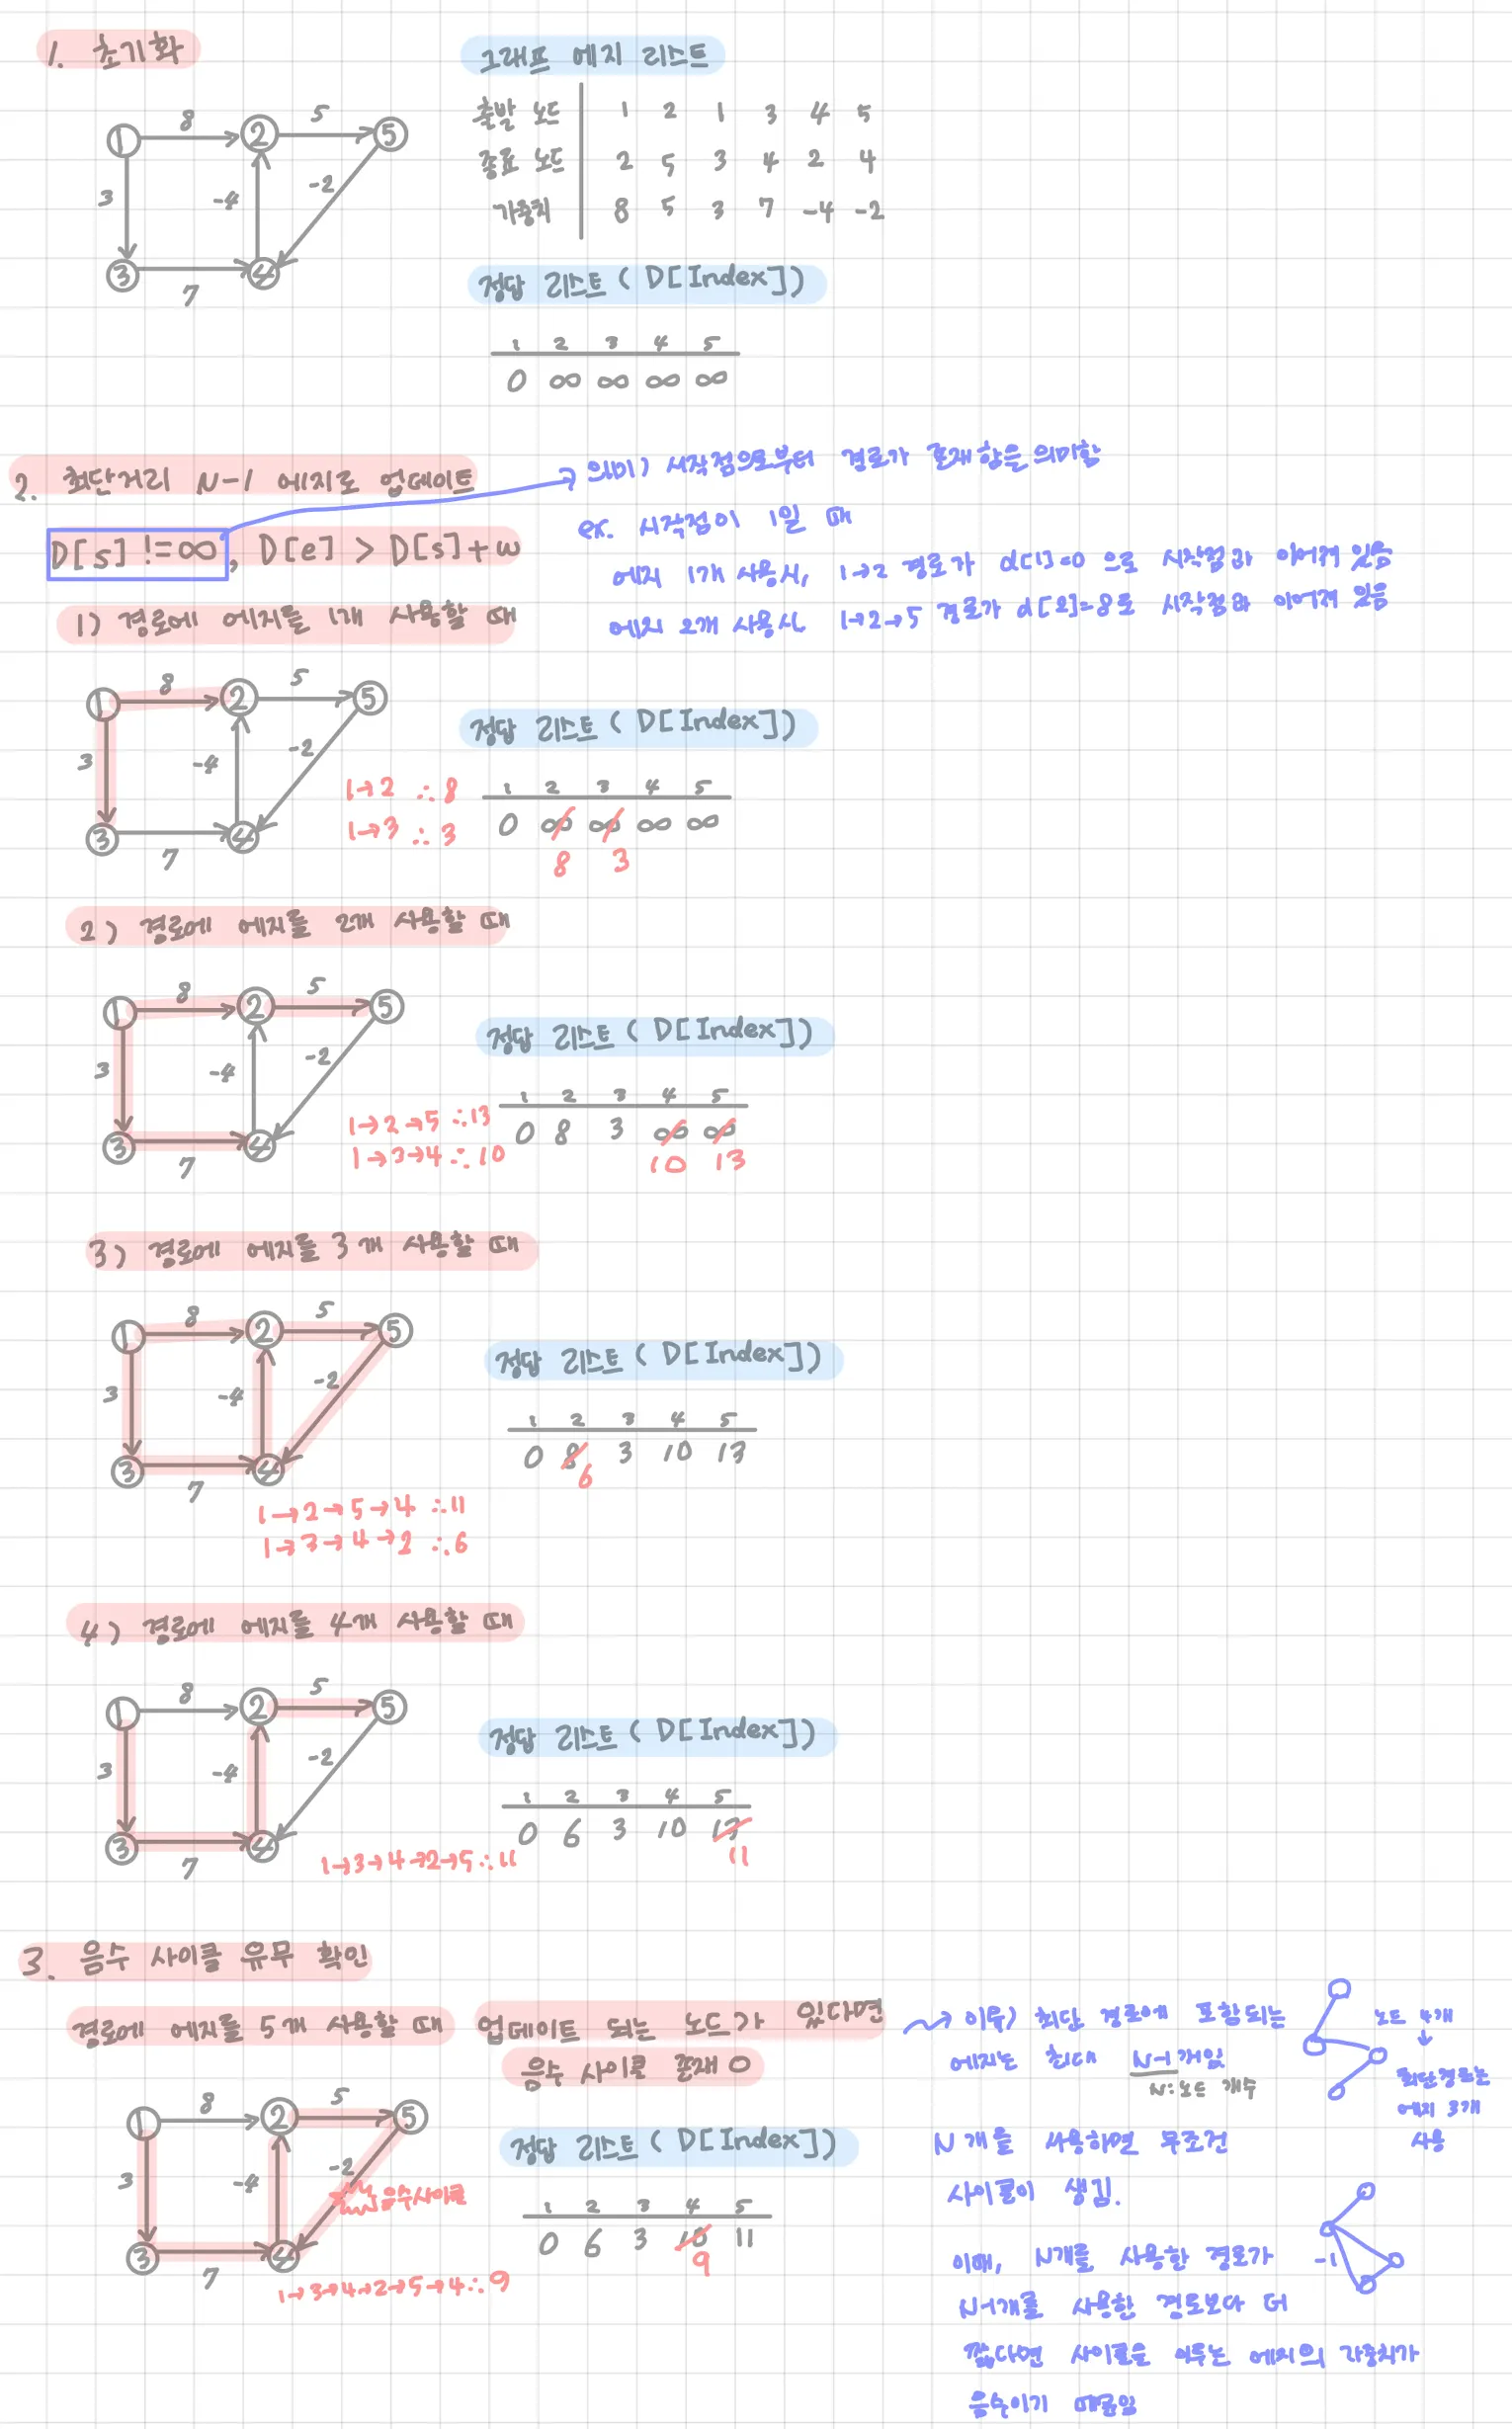 1. 초기화
8
5
1
2
5
3
-4
-2
3
4
7
그래프 에지 리스트
출발 노드 1 2 1 3 4 5
종료 노드 2 5 3 4 2 4
가중치 8 5 3 7 -4 -2
정답 리스트 ( D[Index])
1 2 3 4 5
0 ∞ ∞ ∞ ∞
2. 최단거리 N-1 에지로 업데이트
D[s] != ∞, D[e] > D[s]+w
→ 의미) 시작점으로부터 경로가 존재함을 의미함
ex. 시작점이 1일 때
에지 1개 사용시, 1→2 경로가 d[1]=0 으로 시작점과 이어져 있음
에지 2개 사용시 1→2→5 경로가 d[2]=8로 시작점과 이어져 있음
1) 경로에 에지를 1개 사용할 때
8
5
1
2
5
3
-4
-2
3
4
7
1→2 ∴8
1→3 ∴3
정답 리스트 ( D[Index])
1 2 3 4 5
0 ∞ ∞ ∞ ∞
8 3
2) 경로에 에지를 2개 사용할 때
8
5
1
2
5
3
-4
-2
3
4
7
1→2→5 ∴13
1→3→4 ∴10
정답 리스트 ( D[Index])
1 2 3 4 5
0 8 3 ∞ ∞
10 13
3) 경로에 에지를 3개 사용할 때
8
5
1
2
5
3
-4
-2
3
4
7
1→2→5→4 ∴11
1→3→4→2 ∴6
정답 리스트 ( D[Index])
1 2 3 4 5
0 8 3 10 13
6
4) 경로에 에지를 4개 사용할 때
8
5
1
2
5
3
-4
-2
3
4
7
1→3→4→2→5∴11
정답 리스트 ( D[Index])
1 2 3 4 5
0 6 3 10 13
11
3. 음수 사이클 유무 확인
경로에 에지를 5개 사용할 때 업데이트 되는 노드가 있다면
음수 사이클 존재 O
8
5
1
2
5
3
-4
-2
음수사이클
3
4
7
1→3→4→2→5→4∴9
정답 리스트 ( D[Index])
1 2 3 4 5
0 6 3 10 11
9
이유) 최단 경로에 포함되는
에지는 최대 N-1개임
N:노드 개수
노드 4개
↓
최단경로는
에지 3개
사용
N개를 사용하면 무조건
사이클이 생김.
이때, N개를 사용한 경로가
N-1개를 사용한 경로보다 더
짧다면 사이클을 이루는 에지의 가중치가
음수이기 때문임
-1